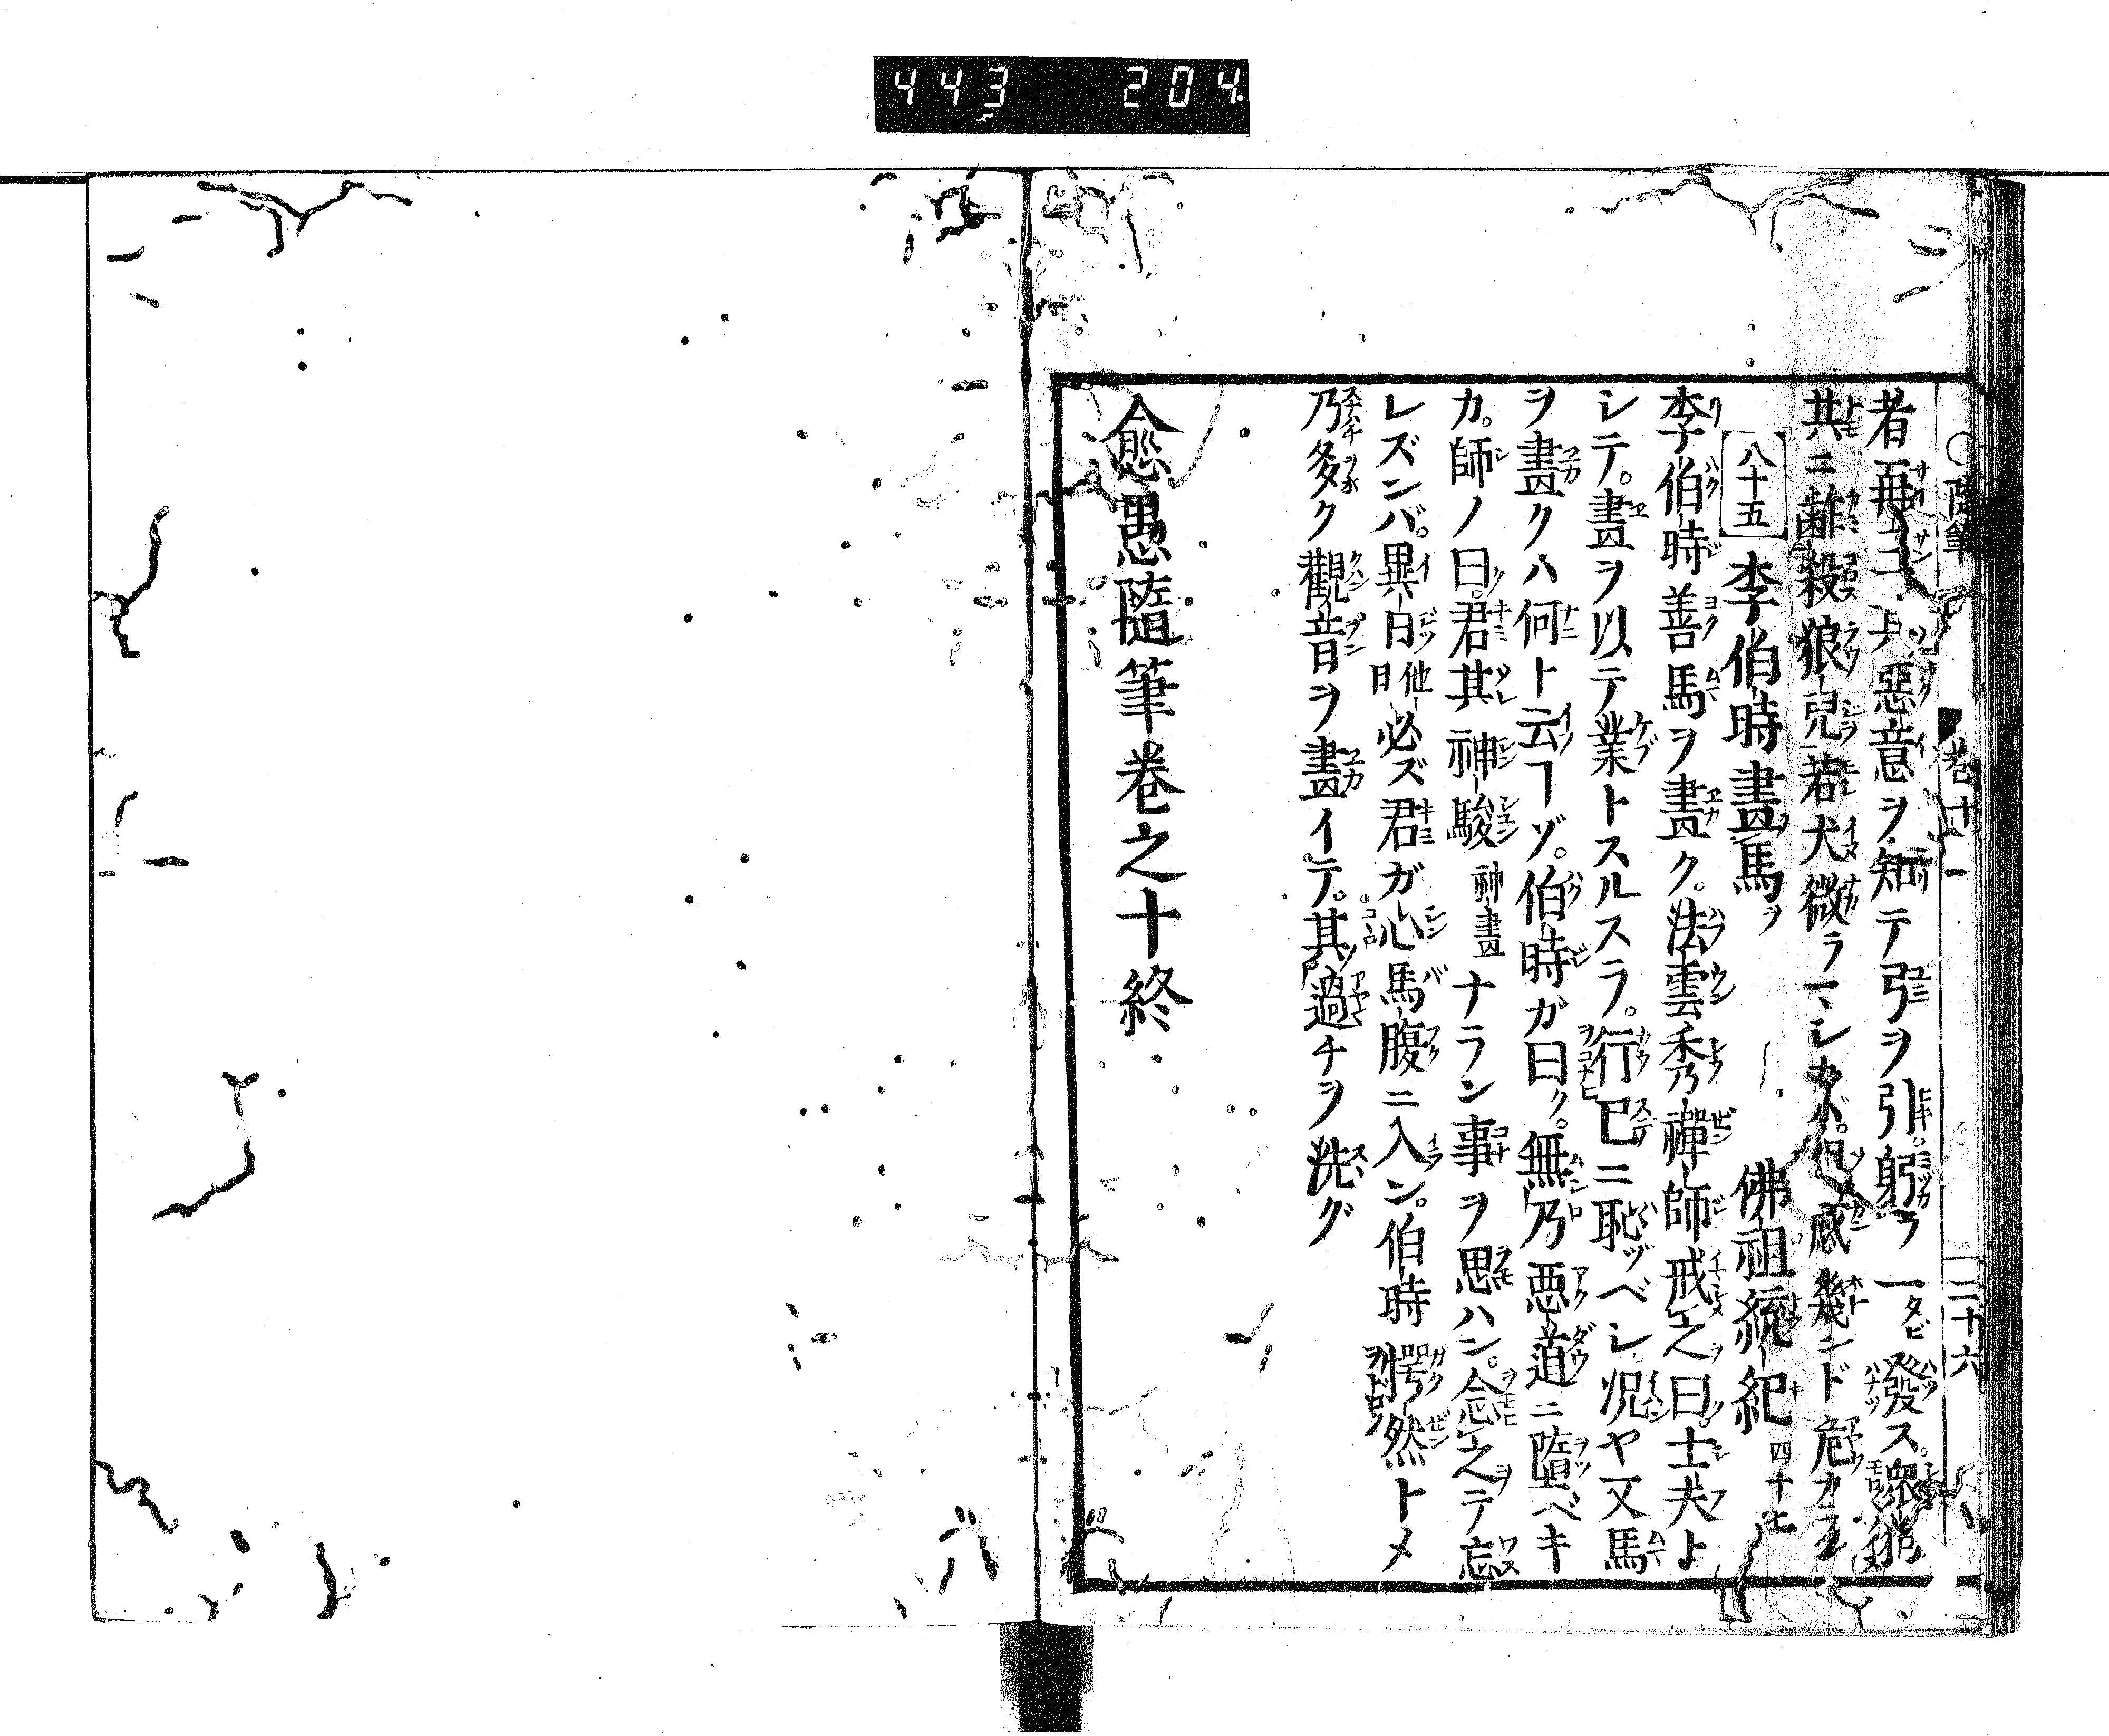 443 204
○隨筆 卷十 二十六
者再三其惡意ヲ知テ弓ヲ引躬ラ一タビ發ス衆猎
共ニ齚殺狼皃若犬微ラ
[八十五]李伯時畫馬ヲ 佛祖統紀四十七
李伯時善馬ヲ畫ク。法雲秀乃禪師戒之曰。士夫ト
シテ。畫ヲ以テ業トスルスラ。行已ニ恥ヅベシ況ヤ又馬
ヲ畫クハ何ト云ヿゾ。伯時ガ曰ク。無乃惡道ニ墮ベキ
カ。師ノ曰。君其神駿神畫ナラン事ヲ思ハン。念之テ忘
レズンバ。異日他日必ズ君ガ心馬腹ニ入ン。伯時愕然トメ
乃多ク觀音ヲ畫イテ。其過チヲ洗グ
僉愚隨筆卷之十終